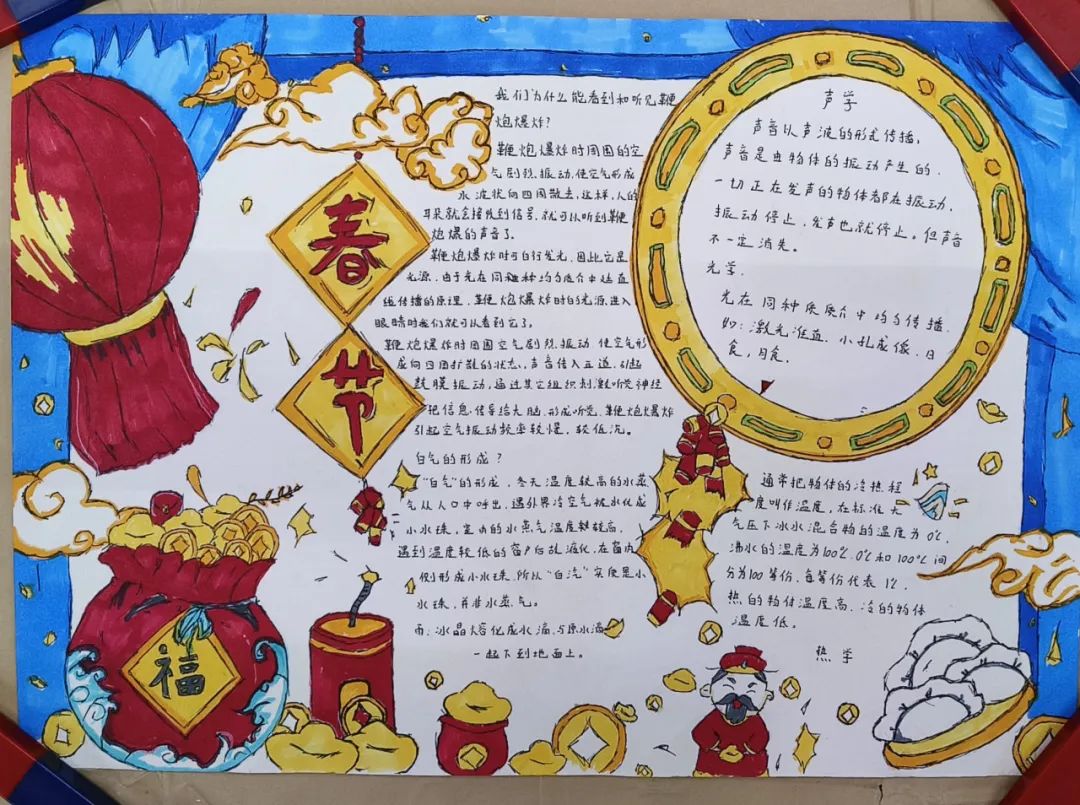 春
节
福
我们为什么能看到和听见鞭
炮爆炸?
鞭炮爆炸时周围的空
气剧烈振动,使空气形成
水波状向四周散去,这样,人的
耳朵就会接收到信号,就可以听到鞭
炮爆的声音了。
鞭炮爆炸时可自行发光,因此它是
光源,由于光在同种均匀质介中延直
线传播的原理,鞭炮爆炸时的光源,进入
眼睛时我们就可以看到它了。
鞭炮爆炸时周围空气剧烈振动,使空气形
成向四周扩散的状态,声音传入耳道,引起
鼓膜振动,通过其它组织刺激听觉神经
把信息传导给大脑,形成听觉,鞭炮炮爆炸
引起空气振动频率较慢,较低沉。
白气的形成?
“白气”的形成,冬天温度较高的水蒸
气从人口中呼出,遇外界冷空气液化成
小水珠,室内的水蒸气温度较高,
遇到温度较低的窗户后放液化,在窗内
侧形成小水珠,所以“白汽”实质是小
水珠,并非水蒸气。
雨:冰晶熔化成水滴,与原水滴
一起下到地面上。
声学
声音以声波的形式传播,
声音是由物体的振动产生的,
一切正在发声的物体都在振动,
振动停止,发声也就停止。但声音
不一定消失。
光学,
光在同种质质介中均匀传播.
如:激光准直,小孔成像,日
食,月食.
通常把物体的冷热程
度叫作温度,在标准大
气压下冰水混合物的温度为0℃,
沸水的温度为100℃,0℃和100℃间
分为100等份,每等份代表1℃,
热的物体温度高,冷的物体
温度低。
热学